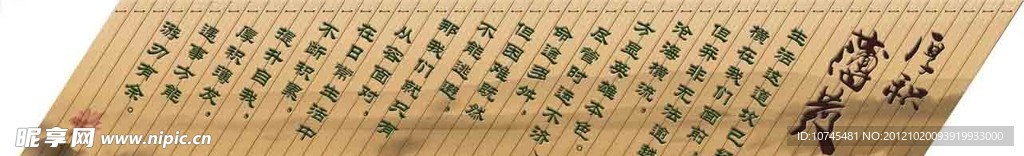 厚积
薄发
生活这道坎已
横在我们面前，
但并非无法逾越
沧海横流，
方显英雄本色。
尽管时运不济
命途多舛，
但困难既然
不能逃避
那我们就只有
从容面对。
在日常生活中
不断积累，
提升自我，
厚积薄发，
遇事方能
游刃有余。
昵享网 www.nipic.cn
ID:10745481 NO:20121020093919933000